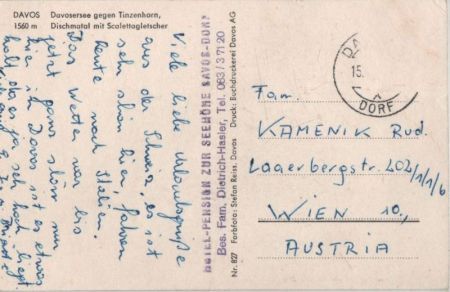 DAVOS Davosersee gegen Tinzenhorn,
1560 m Dischmatal mit Scalettagletscher
Viele liebe Urlaubsgrüße
aus der Schweiz, es ist
sehr schön hier, fahren
heute nach Italien.
Das Wetter war bis
jetzt ganz schön nur
hier in Davos ist es etwas
kalt da es ja sehr hoch liegt.
HOTEL-PENSION ZUR SEEHÖHE DAVOS-DORF
Bes. Fam. Dietrich-Hasler, Tel. 083/3 71 20
Nr. 827 Farbfoto: Stefan Reiss, Davos Druck: Buchdruckerei Davos AG
DA
15.
DORF
Fam.
KAMENIK Rud.
Laaerbergstr. 202/1/1/6
WIEN 10.,
AUSTRIA